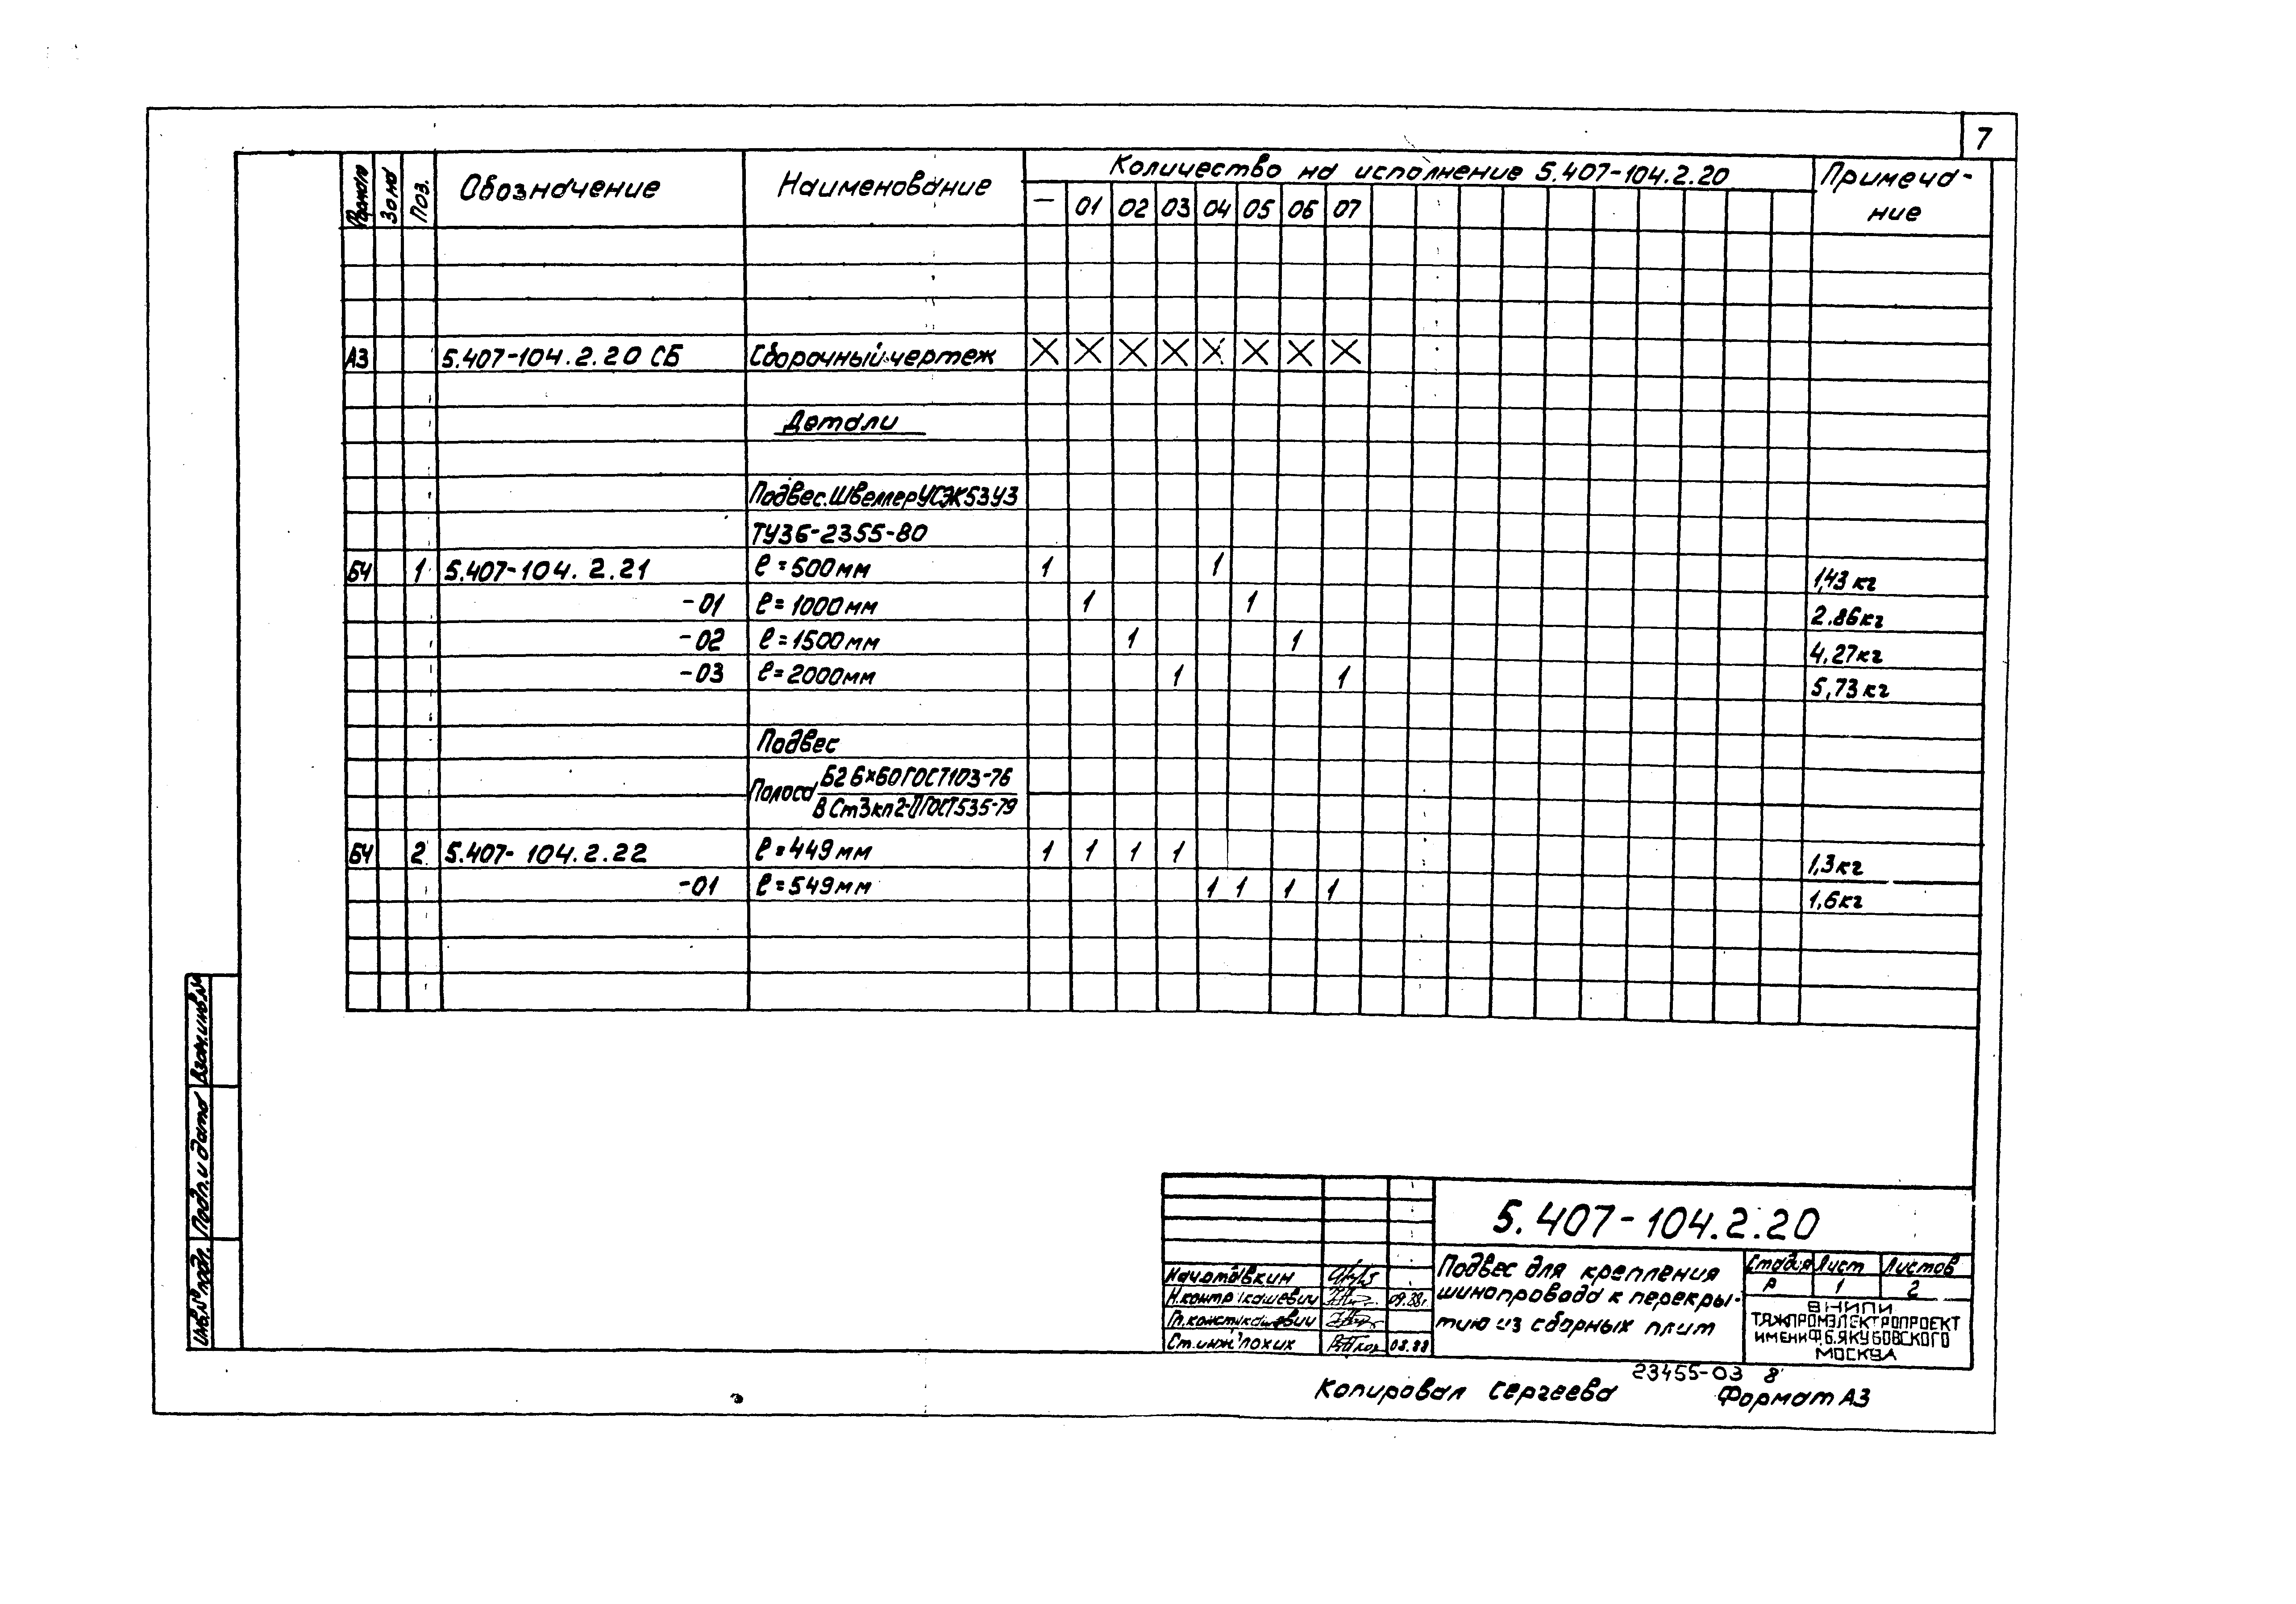 7
Формат Зона Поз. Обозначение Наименование Количество на исполнение 5.407-104.2.20 Примеча-
ние
— 01 02 03 04 05 06 07
А3 5.407-104.2.20 СБ Сборочный чертеж X X X X X X X X
Детали
Подвес. Швеллер УСЭК53У3
ТУ36-2355-80
БЧ 1 5.407-104.2.21 ℓ=500мм 1 1 1,43 кг
-01 ℓ=1000мм 1 1 2.86кг
-02 ℓ=1500мм 1 1 4,27кг
-03 ℓ=2000мм 1 1 5,73кг
Подвес
Полоса Б2 6×60 ГОСТ103-76
ВСт3кп2-П ГОСТ535-79
БЧ 2 5.407-104.2.22 ℓ=449мм 1 1 1 1 1,3кг
-01 ℓ=549мм 1 1 1 1 1,6кг
Взам.инв.№
Подп. и дата
Инв.№ подл.
5.407-104.2.20
Подвес для крепления
шинопровода к перекры-
тию из сборных плит
Стадия Лист Листов
Р 1 2
ВНИПИ
ТЯЖПРОМЭЛЕКТРОПРОЕКТ
ИМЕНИ Ф.Б.ЯКУБОВСКОГО
МОСКВА
Нач.отд
Н.контр 09.88г.
Гл.конст
Ст.инж 08.88
23455-03 8
Копировал Сергеева Формат А3